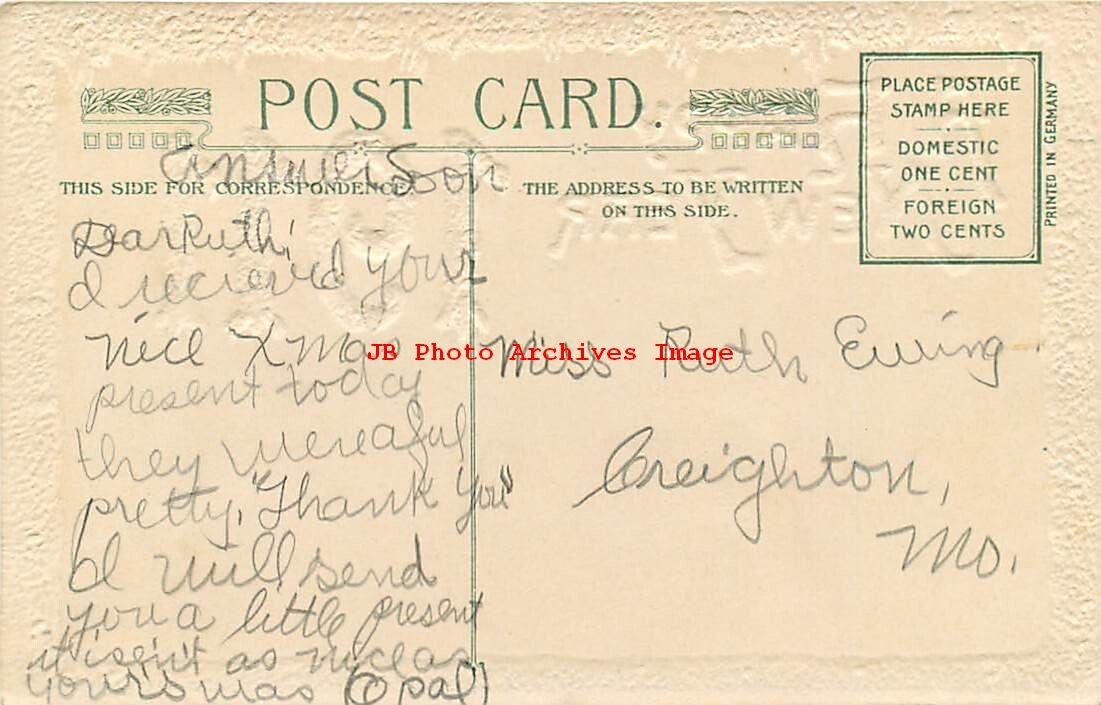 POST CARD.
Answer Soon
THIS SIDE FOR CORRESPONDENCE
THE ADDRESS TO BE WRITTEN
ON THIS SIDE.
PLACE POSTAGE
STAMP HERE
DOMESTIC
ONE CENT
FOREIGN
TWO CENTS
PRINTED IN GERMANY
Dear Ruth;
I recieved your
nice Xmas
present today
they were aful
pretty, "Thank You"
I will send
you a little present
it isen't as nice as
yours was (Opal)
JB Photo Archives Image
Miss Ruth Ewing
Creighton,
Mo.